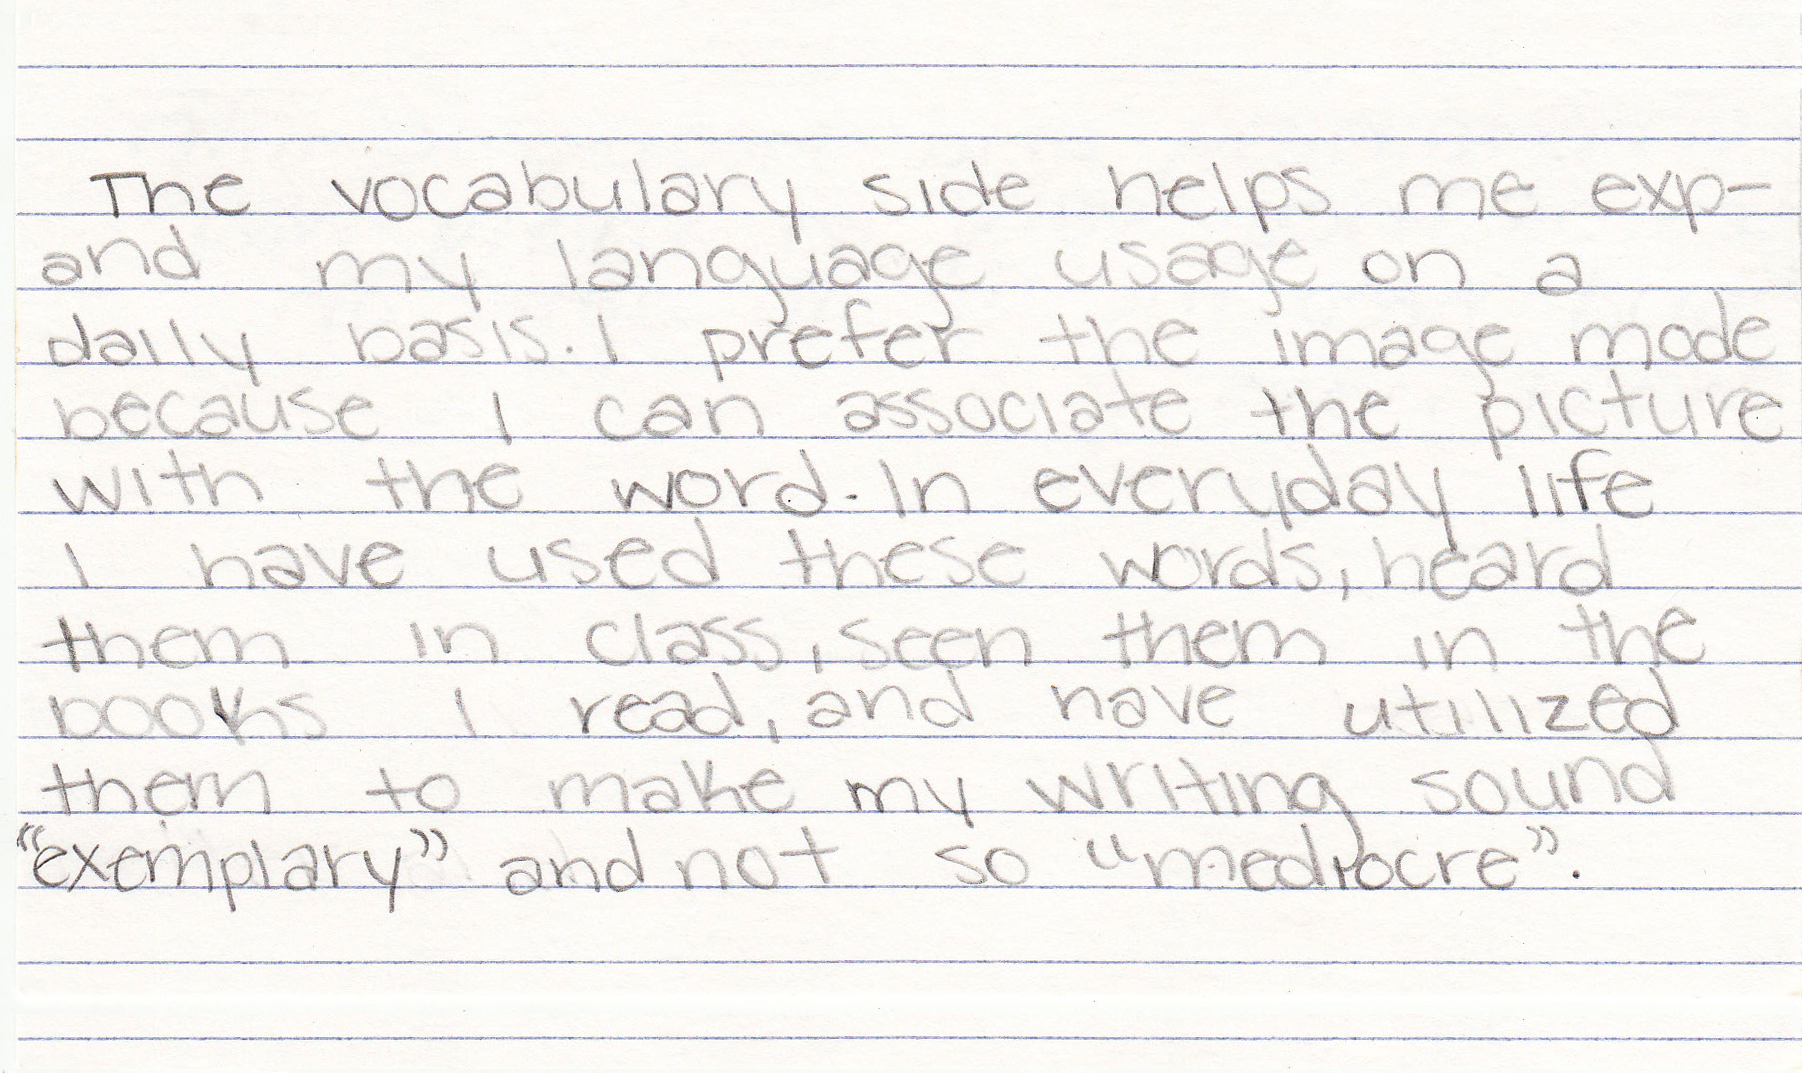 The vocabulary side helps me exp-
and my language usage on a
daily basis. I prefer the image mode
because I can associate the picture
with the word. In everyday life
I have used these words, heard
them in class, seen them in the
books I read, and have utilized
them to make my writing sound
“exemplary” and not so “mediocre”.